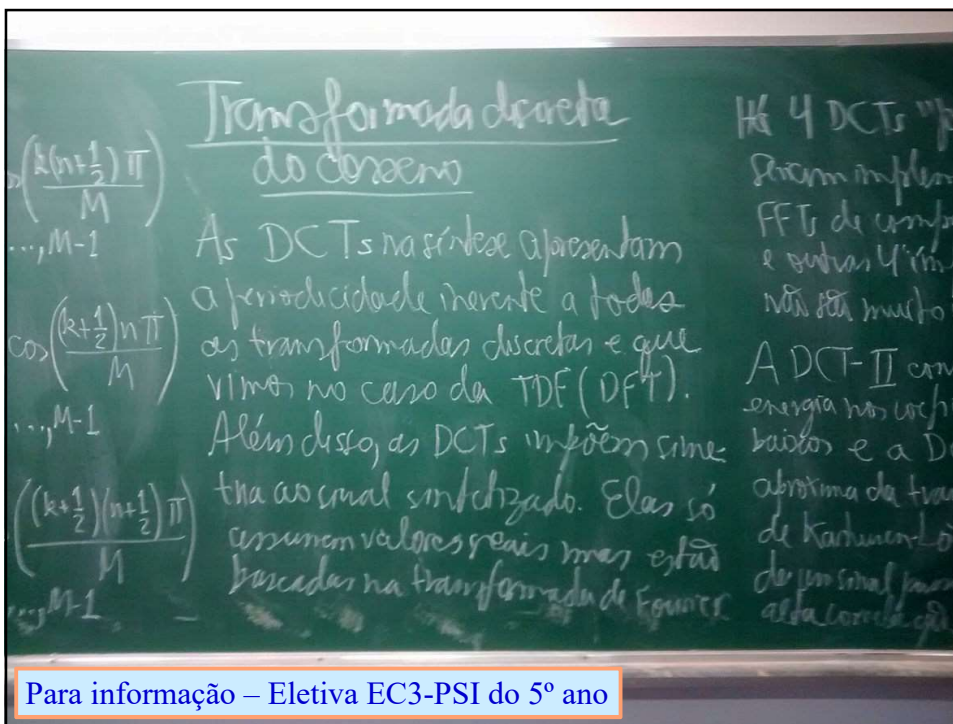 (k(n+1/2)π / M)
..., M-1
cos((k+1/2)nπ / M)
..., M-1
((k+1/2)(n+1/2)π / M)
..., M-1
Transformada discreta
do cosseno
As DCTs na síntese apresentam
a periodicidade inerente a todas
as transformadas discretas e que
vimos no caso da TDF (DFT).
Além disso, as DCTs impõem sime
tria ao sinal sintetizado. Elas só
assumem valores reais mas estão
baseadas na transformada de Fourier.
Há 4 DCTs "p
serem implem
FFTs de comp
e outras 4 im
não são muito
A DCT-II con
energia nos coefi
baixos e a D
aproxima da tra
de Karhunen-Lo
de um sinal
alta correlação
Para informação – Eletiva EC3-PSI do 5º ano